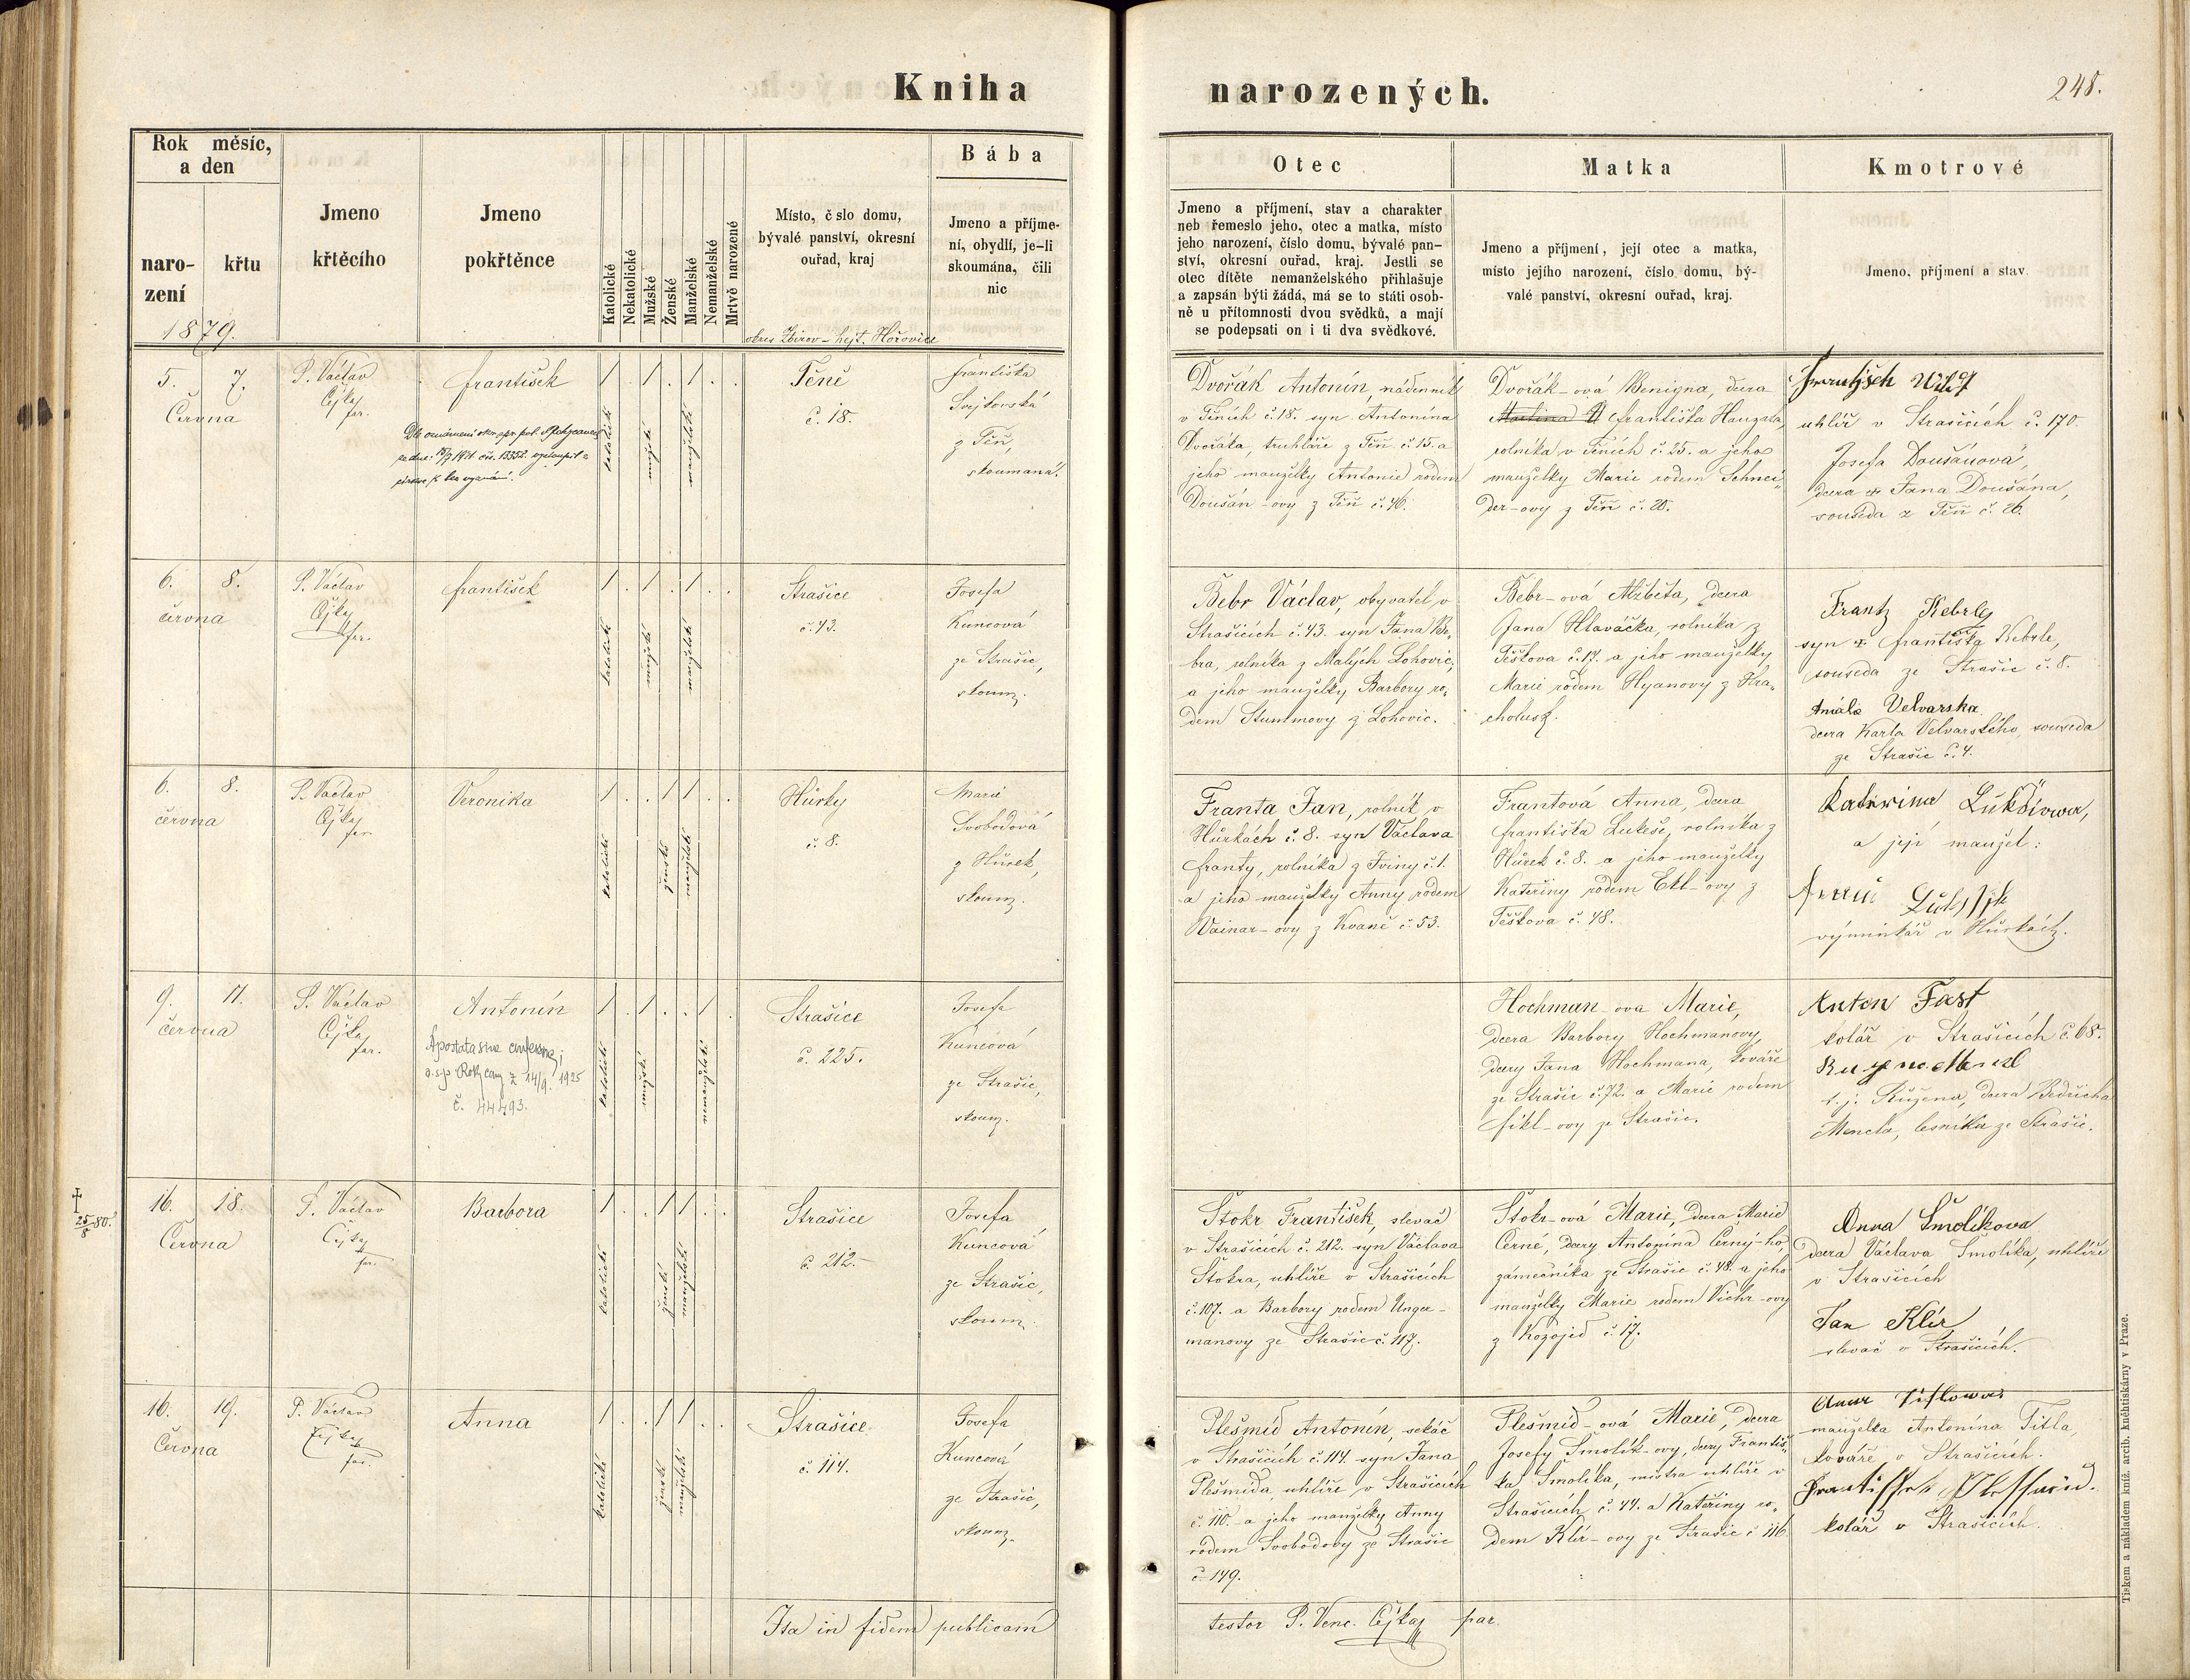 Kniha narozených.
248.
Rok měsíc, a den
naro-
zení
křtu
1879.
Jmeno
křtěcího
Jmeno
pokřtěnce
Katolické
Nekatolické
Mužské
Ženské
Manželské
Nemanželské
Mrtvě narozené
Místo, č slo domu,
bývalé panství, okresní
ouřad, kraj
okres Zbirov – hejt. Hořovice
Bába
Jmeno a příjme-
ní, obydlí, je-li
skoumána, čili
nic
Otec
Jmeno a příjmení, stav a charakter
neb řemeslo jeho, otec a matka, místo
jeho narození, číslo domu, bývalé pan-
ství, okresní ouřad, kraj. Jestli se
otec dítěte nemanželského přihlašuje
a zapsán býti žádá, má se to státi osob-
ně u přítomnosti dvou svědků, a mají
se podepsati on i ti dva svědkové.
Matka
Jmeno a příjmení, její otec a matka,
místo jejího narození, číslo domu, bý-
valé panství, okresní ouřad, kraj.
Kmotrové
Jmeno, příjmení a stav
5. 7.
Června
P. Václav
Cejka
far.
František
katolické
mužské
manželské
Těně
č. 18.
Františka
Svejkovská
z Těň,
skoumaná.
Dvořák Antonín, nádenník
v Těních č. 18. syn Antonína
Dvořáka, truhláře z Těň č. 15. a
jeho manželky Antonie rodem
Doušán-ovy z Těň č. 46.
Dvořák-ová Benigna, dcera
Františka Hauzala,
rolníka v Těních č. 25. a jeho
manželky Marie rodem Schnei-
der-ovy z Těň č. 28.
uhlíř v Strašicích č. 170.
Josefa Doušánová,
dcera + Jana Doušána,
souseda z Těň č. 26.
6. 8.
června
P. Václav
Cejka
far.
František
katolické
mužské
manželské
Strašice
č. 43.
Josefa
Kuncová
ze Strašic,
skoumz.
Bebr Václav, obyvatel v
Strašicích č. 43. syn Jana Be-
bra, rolníka z Malých Lohovic,
a jeho manželky Barbory ro-
dem Stummovy z Lohovic.
Bebr-ová Alžběta, dcera
Jana Hlaváčka, rolníka z
Těškova č. 17. a jeho manželky
Marie rodem Hyanovy z Hra-
cholusk.
Frantz Kebrle
syn + Františka Kebrle,
souseda ze Strašic č. 8.
Amálie Velvarska
dcera Karla Velvarského, souseda
ze Strašic č. 4.
6. 8.
června
P. Václav
Cejka
far.
Veronika
katolické
ženské
manželské
Hůrky
č. 8.
Marie
Svobodová
z Hůrek,
skoumz.
Franta Jan, rolník v
Hůrkách č. 8. syn Václava
Franty, rolníka z Iviny č. 1.
a jeho manželky Anny rodem
Vainar-ovy z Kvaně č. 53.
Frantová Anna, dcera
Františka Lukeše, rolníka z
Hůrek č. 8. a jeho manželky
Kateřiny rodem Ekl-ovy z
Těškova č. 48.
a její manžel:
výminkář v Hůrkách.
9. 11.
června
P. Václav
Cejka
far.
Antonín
o.s.p. Rokycany z 14/9. 1925
č. 44493.
katolické
mužské
nemanželské
Strašice
č. 225.
Josefa
Kuncová
ze Strašic,
skoumz.
Hochman-ova Marie,
dcera Barbory Hochmanovy,
dcery Jana Hochmana, kováře
ze Strašic č. 72. a Marie rodem
Fikl-ovy ze Strašic.
Anton Fast
kolář v Strašicích č. 68.
t. j. Růžena, dcera Bedřicha
Mencla, lesníka ze Strašic.
† 25/8 80.
16. 18.
Června
P. Václav
Cejka
far.
Barbora
katolické
ženské
manželské
Strašice
č. 212.
Josefa
Kuncová
ze Strašic,
skoumz.
Štokr František, slevač
v Strašicích č. 212. syn Václava
Štokra, uhlíře v Strašicích
č. 107. a Barbory rodem Unger-
manovy ze Strašic č. 117.
Štokr-ová Marie, dcera Marie
Černé, dcery Antonína Černý-ho,
zámečníka ze Strašic č. 48. a jeho
manželky Marie rodem Vichr-ovy
z Kozojed č. 17.
Anna Smolikova
dcera Václava Smolíka, uhlíře
v Strašicích
Jan Klír
slevač v Strašicích.
16. 19.
Června
P. Václav
Cejka
far.
Anna
katolické
ženské
manželské
Strašice
č. 114.
Josefa
Kuncová
ze Strašic,
skoumz.
Plešmíd Antonín, sekáč
v Strašicích č. 114. syn Jana
Plešmída, uhlíře v Strašicích
č. 110. a jeho manželky Anny
rodem Svobodovy ze Strašic
č. 149.
Plešmíd-ová Marie, dcera
Josefy Smolík-ovy, dcery Františ-
ka Smolíka, mistra uhlíře v
Strašicích č. 44. a Kateřiny ro-
dem Klír-ovy ze Strašic č. 116.
manželka Antonína Titla,
kováře v Strašicích.
kolář v Strašicích.
Ita in fidem publicam
testor P. Venc. Cejka par.
Tiskem a nákladem kníž. arcib. kněhtiskárny v Praze.